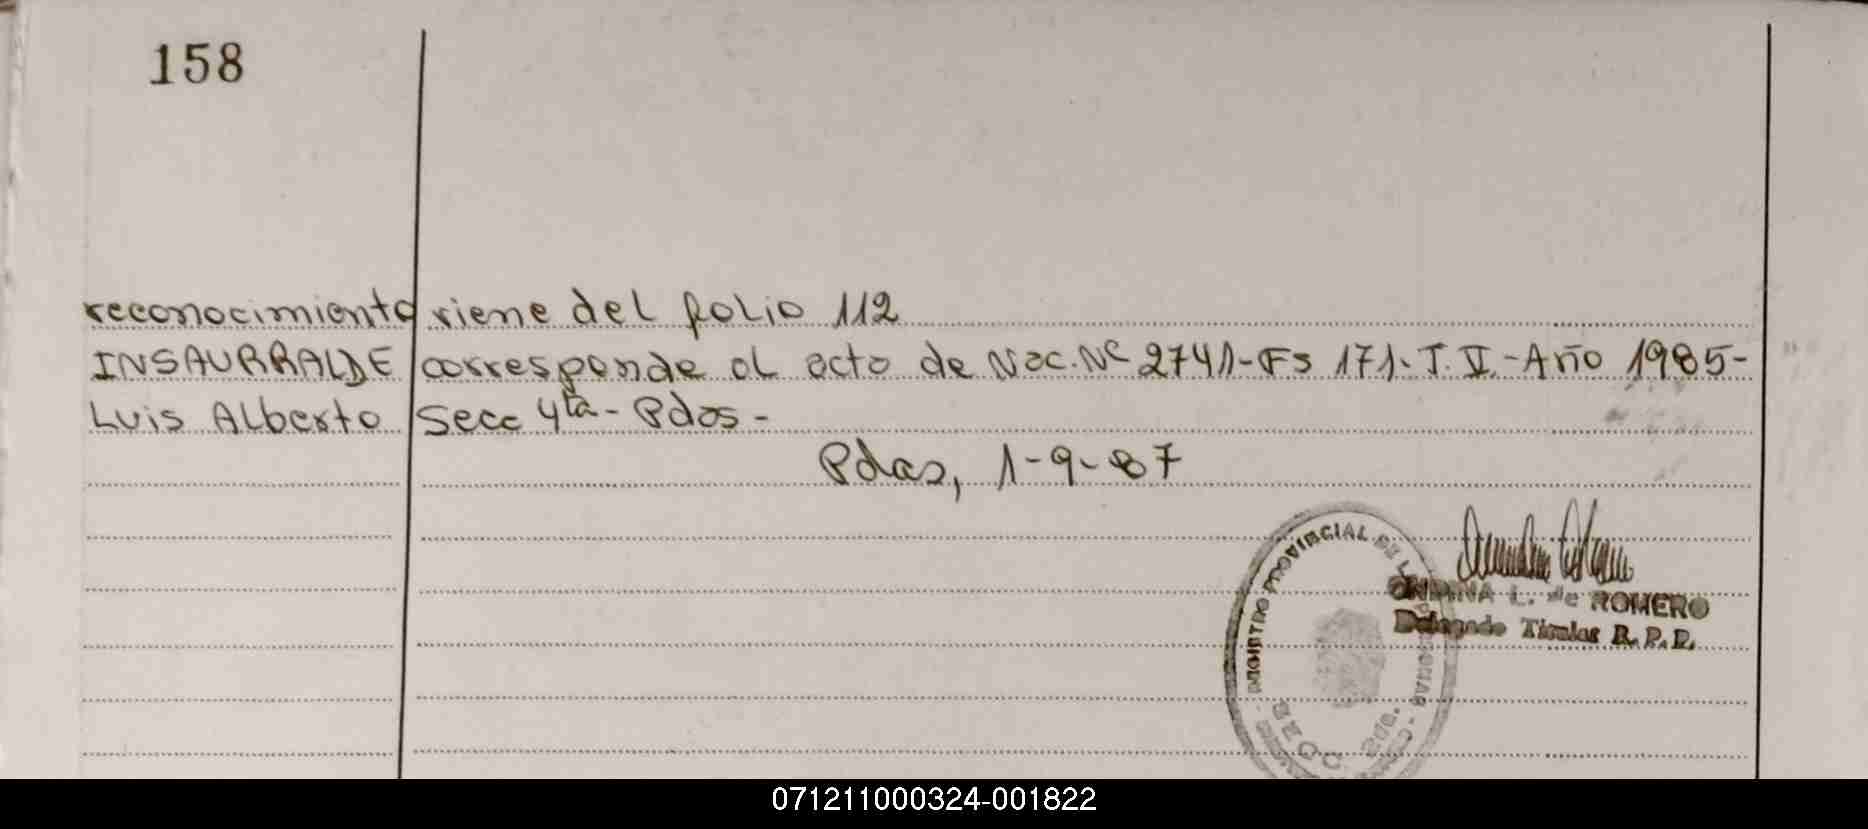 158
reconocimiento viene del folio 112
INSAURRALDE corresponde al acta de Nac. Nº 2741-Fs 171. T. II.-Año 1985-
Luis Alberto Secc 4ta - Pdas -
Pdas, 1-9-87
REGISTRO PROVINCIAL DE
L. de ROMERO
Delegado Titular R. P. P.
071211000324-001822